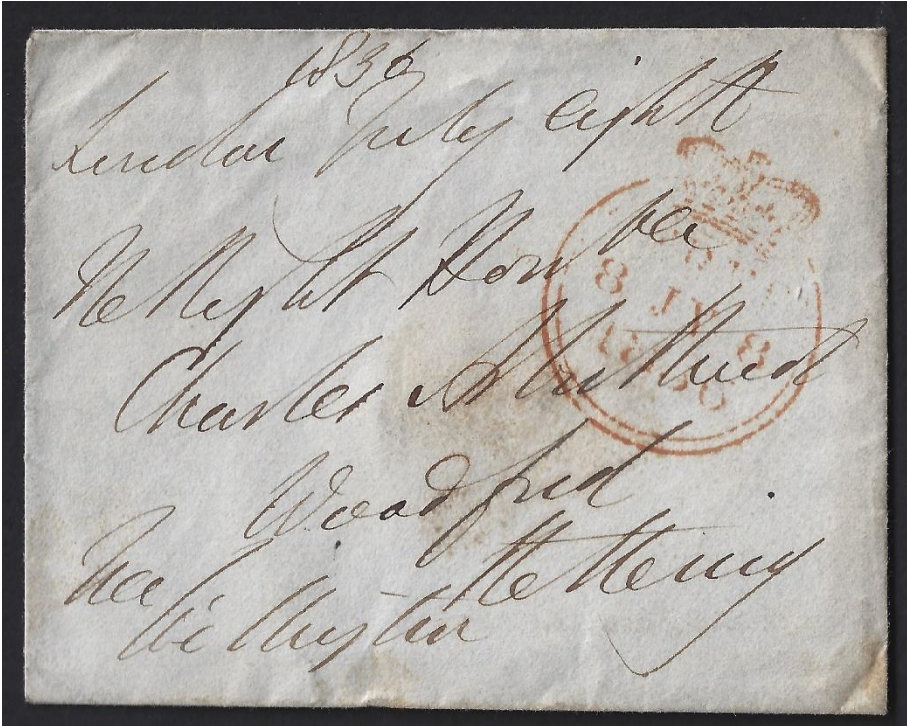 1836
London July eight
The Right Honble
Charles Arbuthnot
Woodford
Kettering
Wellington
8 JY 8
1836